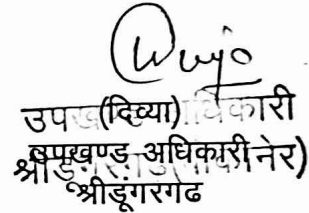 उपखण्ड अधिकारी
(दिव्या)
उपखण्ड अधिकारी
श्रीडूंगरगढ (बीकानेर)
श्रीडूंगरगढ